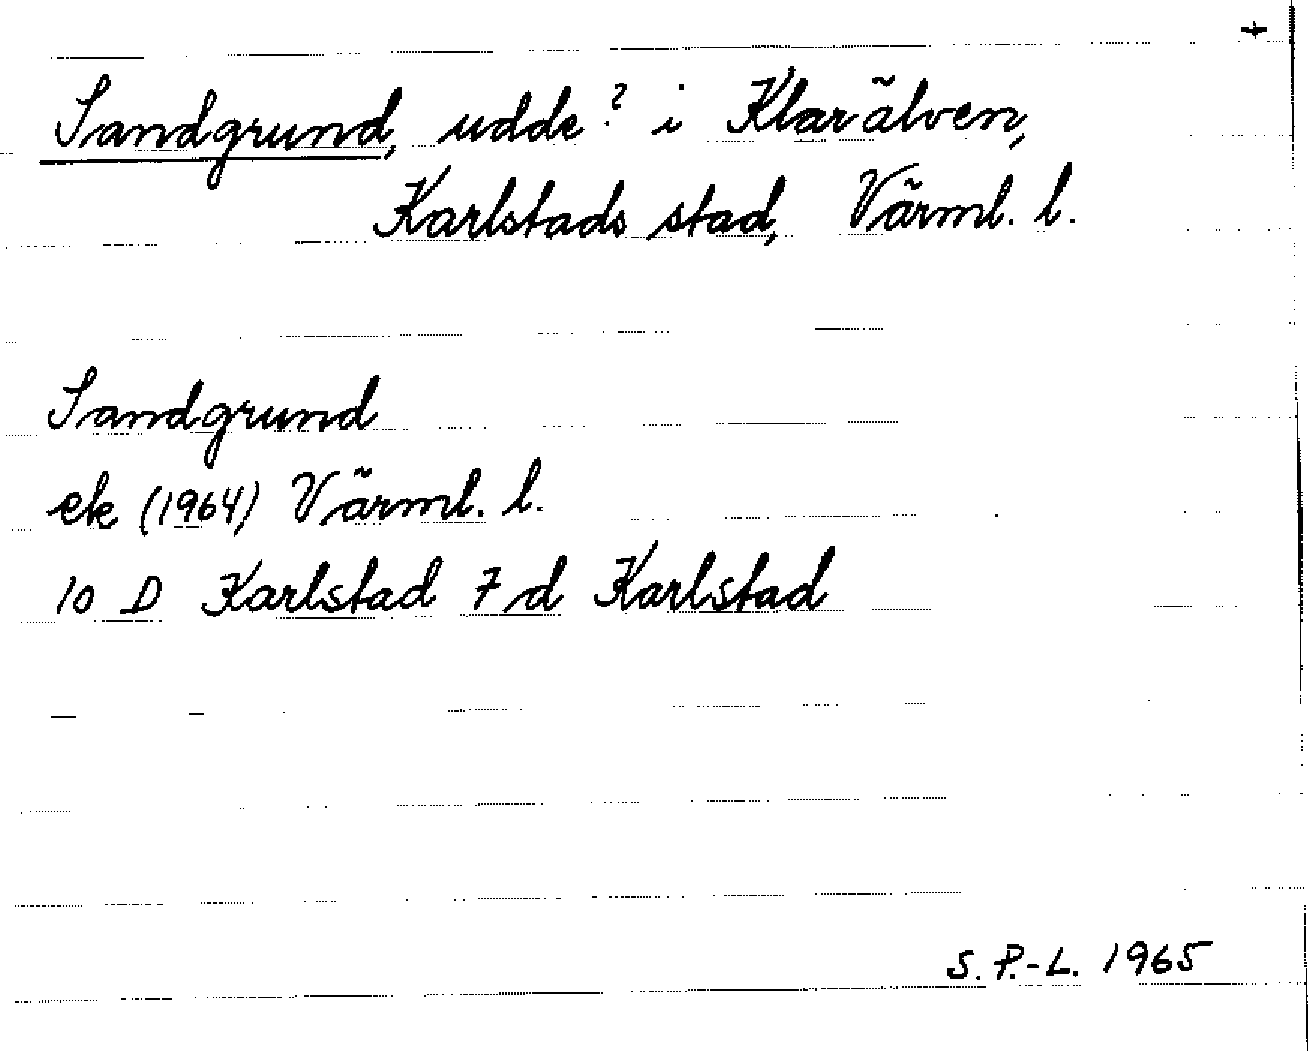 +
Sandgrund, udde? i Klarälven,
Karlstads stad, Värml. l.
Sandgrund
ek (1964) Värml. l.
10 D Karlstad 7 d Karlstad
S. P.-L. 1965